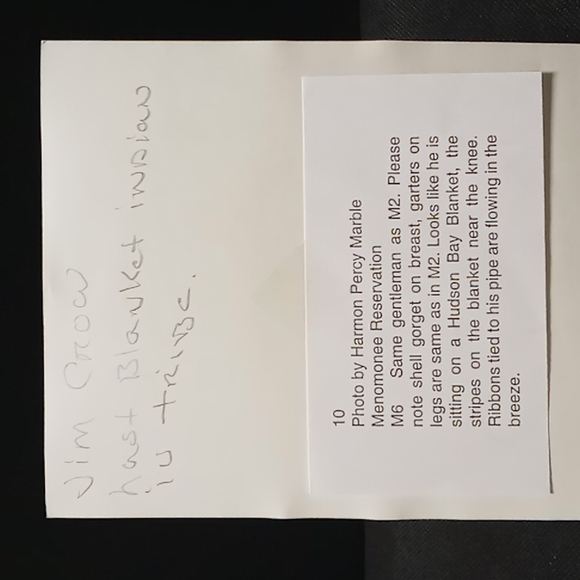 Jim Crow
last Blanket indian
in tribe.
10
Photo by Harmon Percy Marble
Menomonee Reservation
M6 Same gentleman as M2. Please
note shell gorget on breast, garters on
legs are same as in M2. Looks like he is
sitting on a Hudson Bay Blanket, the
stripes on the blanket near the knee.
Ribbons tied to his pipe are flowing in the
breeze.